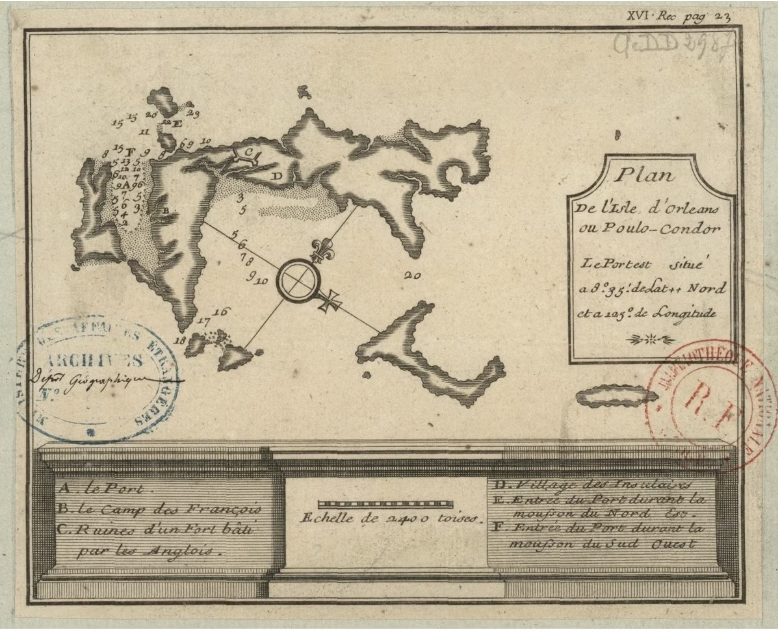 XVI. Rec pag 23
Plan
De l'Isle d'Orleans
ou Poulo-Condor
Le Port est situé
a 8°. 35'. de Latte Nord
et a 125° de Longitude
20
29
15
15
E
11
15
F
9
C
D
A
B
3
5
5
6
7
8
9
10
20
16
17
18
ARCHIVES
Dépot Géographique
N°.
R.F
A. le Port.
B. le Camp des François
C. Ruines d'un Fort bâti
par les Anglois.
Echelle de 2400 toises.
D. Village des Insulaires
E. Entrée du Port durant la
mousson du Nord Est.
F. Entrée du Port durant la
mousson du Sud Ouest